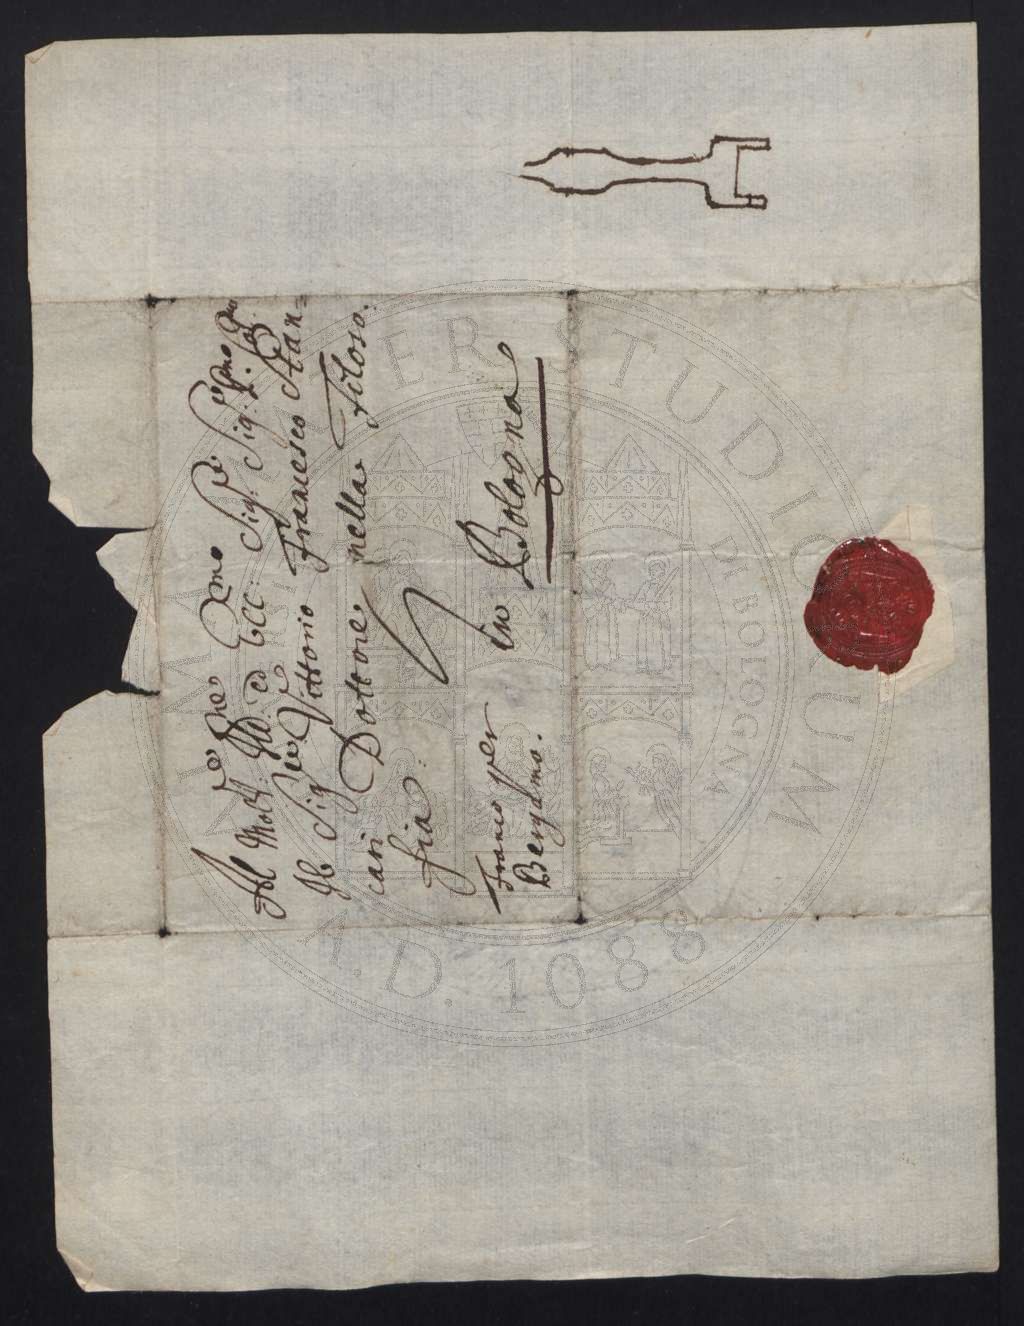 Al Molt: Ill:re ed Ecc:mo Sig:re Sig: P:rone Col:mo
Il Sig:re Vittorio Francesco Stan=
cari Dottore nella Filoso
fia:
Franco per
Bergamo.
in Bologna
ALMA MATER STUDIORUM
A.D. 1088
DI BOLOGNA